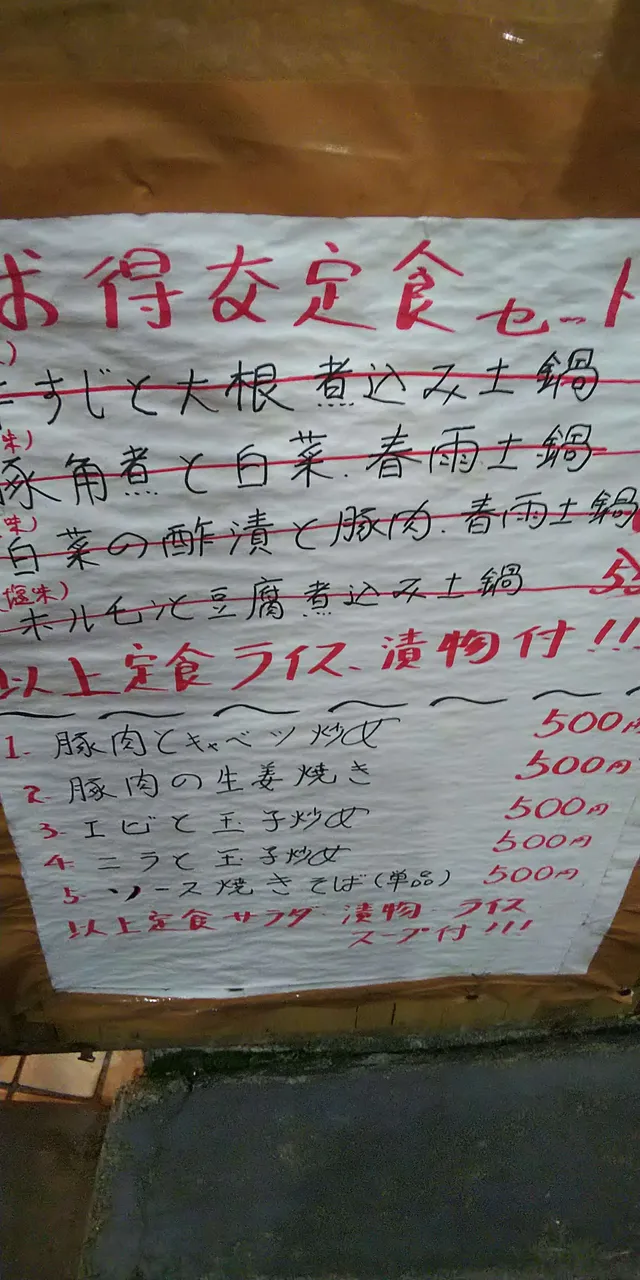 お得な定食セット
すじと大根煮込み土鍋
味)
豚角煮と白菜.春雨土鍋
味)
白菜の酢漬と豚肉.春雨土鍋
塩味)
ホルモンと豆腐煮込み土鍋
以上定食ライス、漬物付!!!
1. 豚肉とキャベツ炒め 500円
2. 豚肉の生姜焼き 500円
3. エビと玉子炒め 500円
4. ニラと玉子炒め 500円
5. ソース焼きそば(単品) 500円
以上定食サラダ 漬物 ライス
スープ付!!!